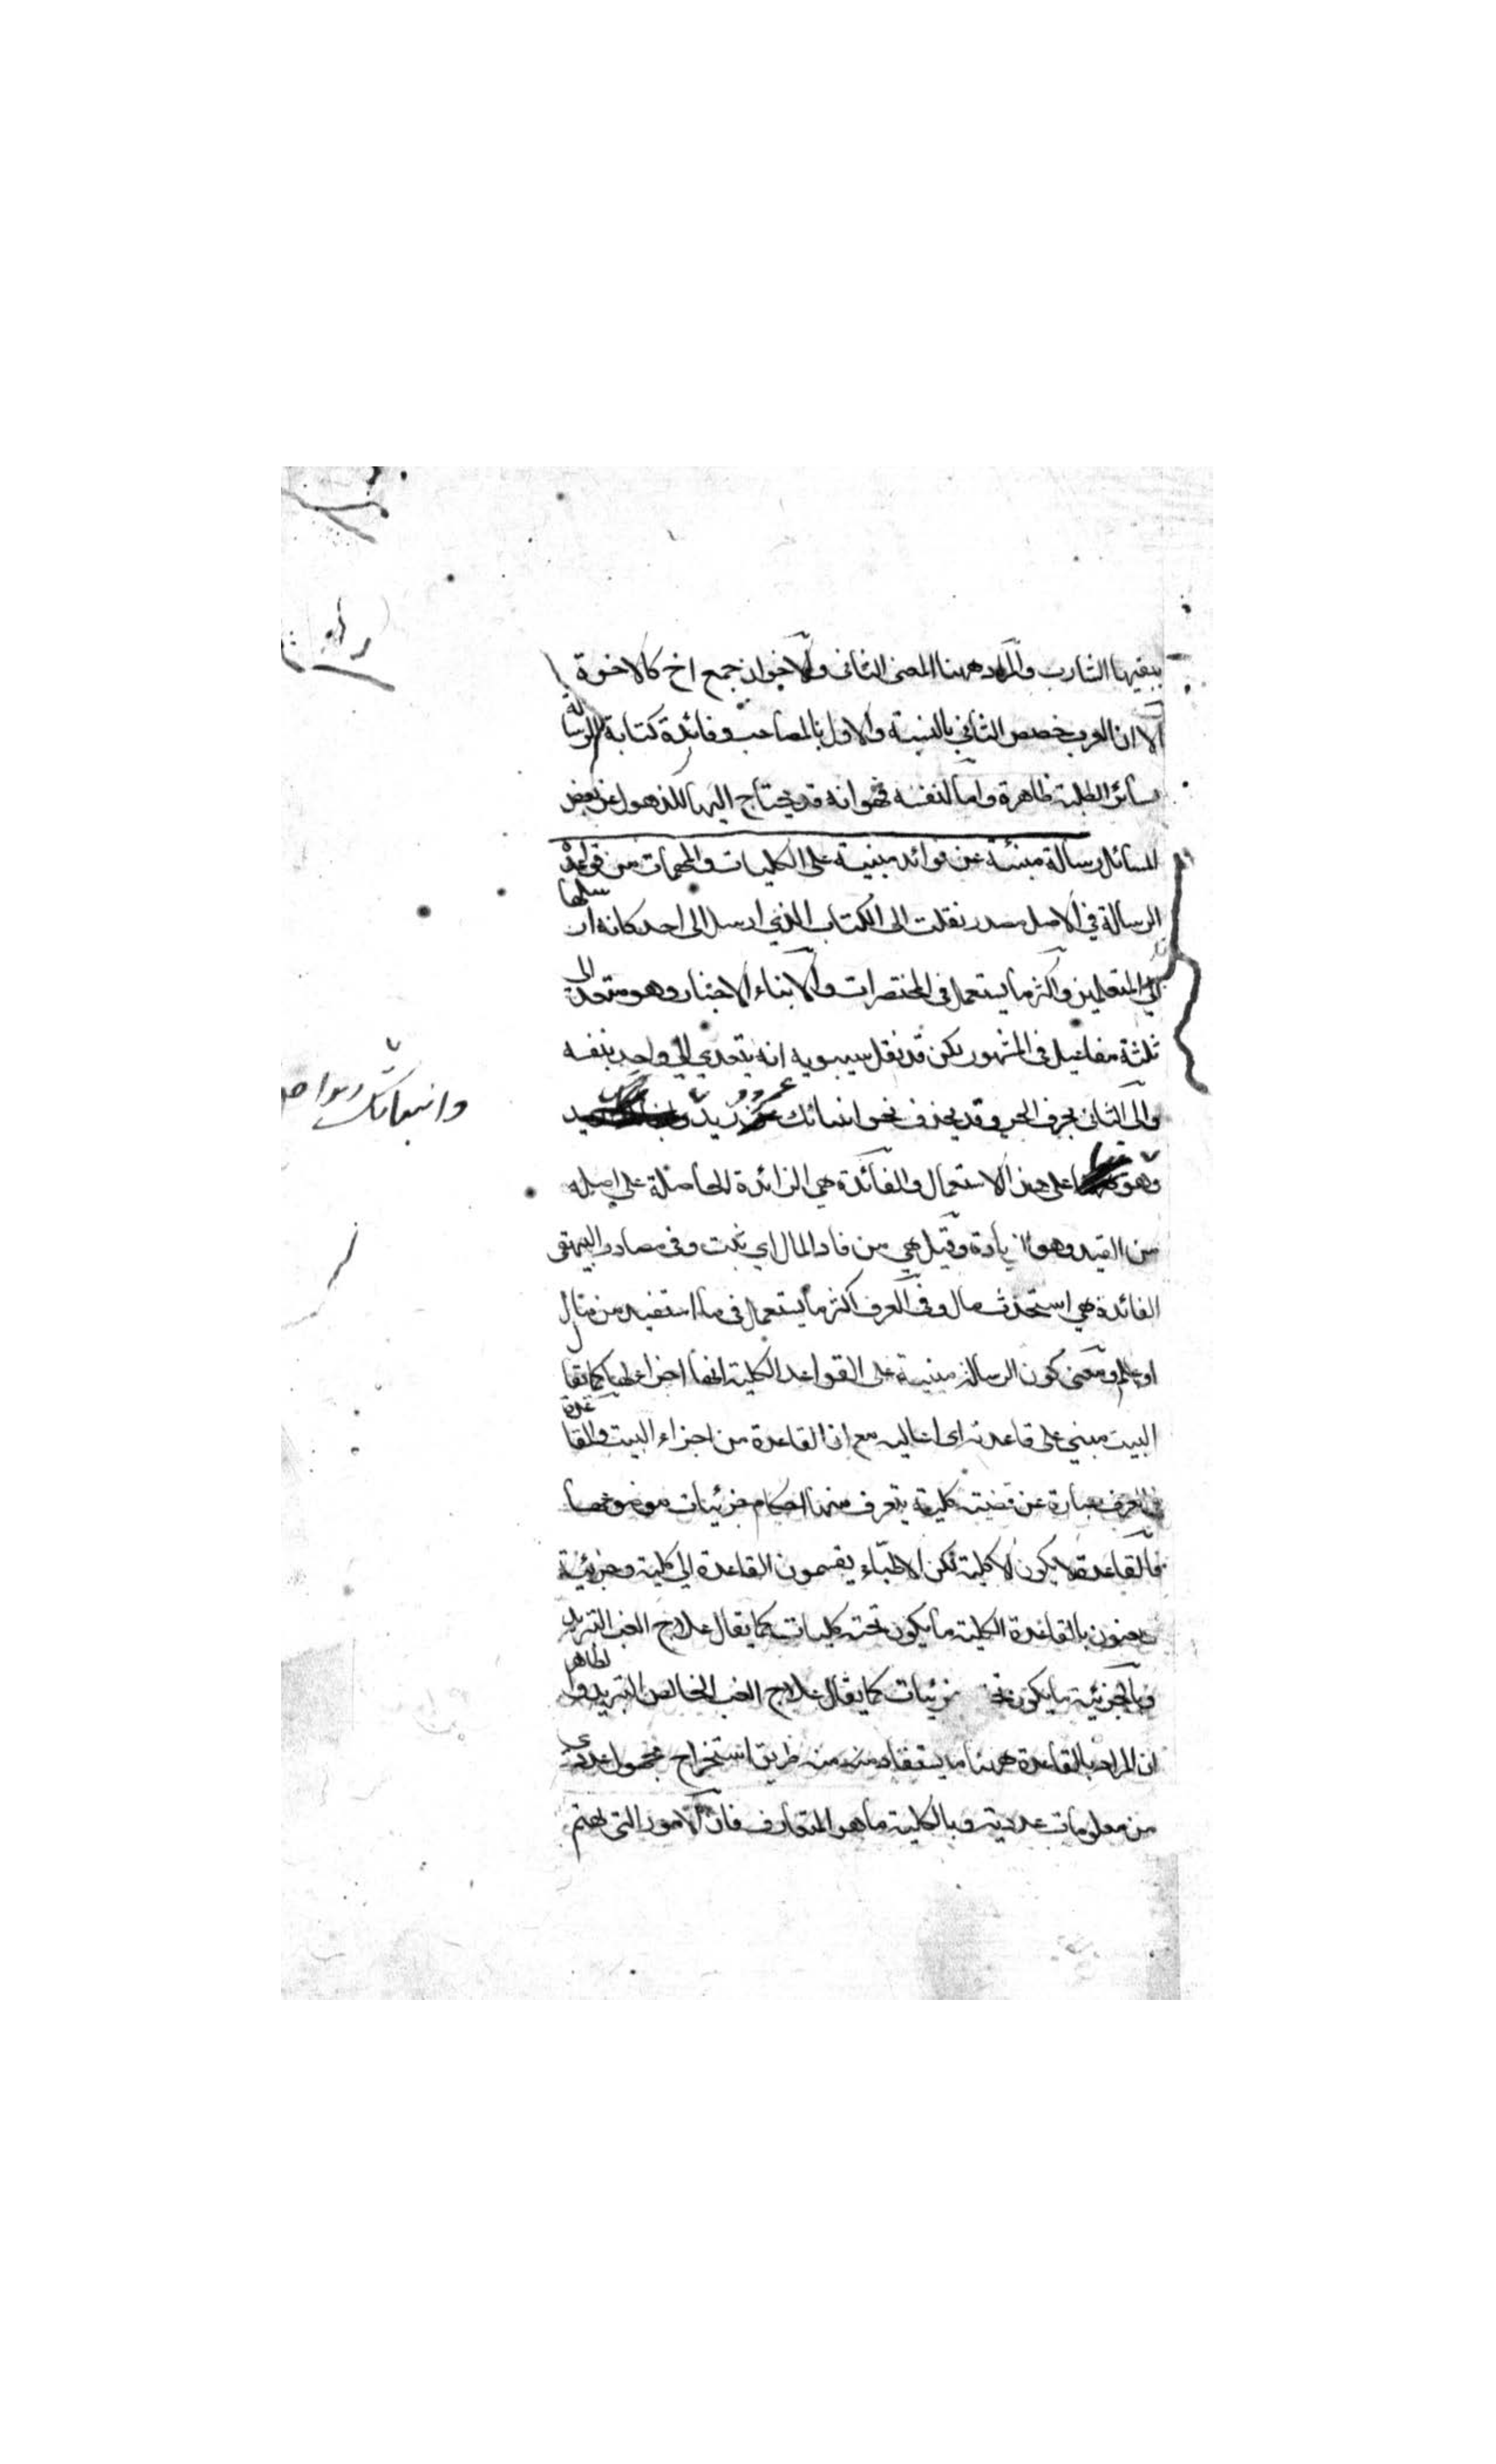 يبقيها الشارب والمراد ههنا المعنى الثانى والاخوان جمع اخ كالاخوة
الا ان العرف خصص الثاني بالنسبة والاول بالمصاحب وفائدة كتابة الرسالة
لسائر الطلبة ظاهرة واما لنفسه فهو انه قد يحتاج اليها للذهول عن بعض
المسائل رسالة مبنئة عن فوائد مبنية على الكليات والمهمات من قواعده
الرسالة في الاصل مصدر نقلت الى الكتاب الذي ارسل الى احد كانه ارسلها
الى المتعلمين واكثر ما يستعمل فى المختصرات والانباء الاخبار وهو متعد الى
ثلثة مفاعيل فى المشهور لكن قد نقل سيبويه انه يتعدي الى واحد بنفسه
والى الثانى بحرف الجر وقد يحذف نحو انباتك عن زيد
وهو على هذا الاستعمال والفائدة هي الزائدة الحاصلة على اصله
من الفيد وهو الزيادة وقيل هي من فاد المال اي ثبت وفى مصادر البيهقى
الفائدة هي استحدث مال وفى العرف اكثر ما يستعمل فى ما استفيد من مال
او علم ومعنى كون الرسالة مبنية على القواعد الكلية انها اجزاء لها كما يقال
البيت مبني على قاعدته اى اساسه مع ان القاعدة من اجزاء البيت والقاعدة
فى العرف عبارة عن قضية كلية يتعرف منها احكام جزئيات موضوعها
فالقاعدة لا يكون الا كلية لكن الاطباء يقسمون القاعدة الى كلية وجزئية
يعنون بالقاعدة الكلية ما يكون تحته كليات كما يقال علاج الغب التبريد
وبالجزئية ما يكون تحته جزئيات كما يقال علاج الغب الخالص التبريد والظاهر
ان المراد بالقاعدة ههنا ما يستفاد منه من طريق استخراج مجهول عددى
من معلومات عددية وبالكلية ما هو المتعارف فان الامور التى يهتم